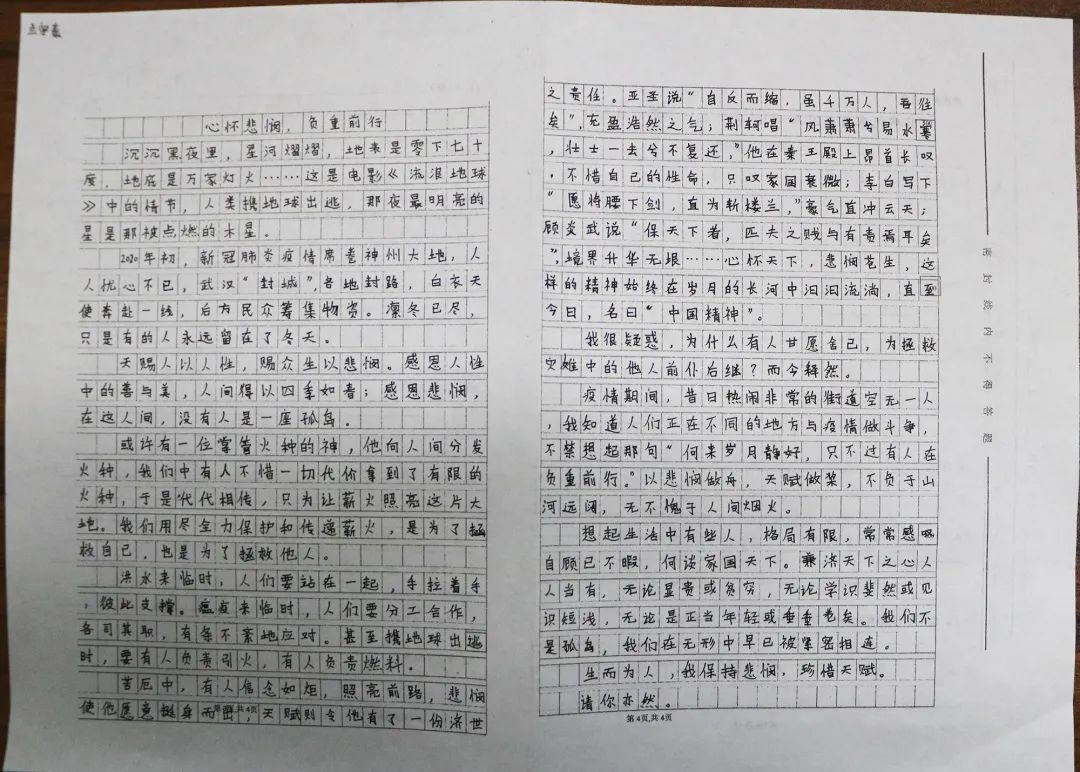 心怀悲悯，负重前行
沉沉黑夜里，星河熠熠，地表是零下七十
度，地底是万家灯火……这是电影《流浪地球
》中的情节，人类携地球出逃，那夜最明亮的
星是那被点燃的木星。
2020年初，新冠肺炎疫情席卷神州大地，人
人忧心不已，武汉“封城”，各地封路，白衣天
使奔赴一线，后方民众筹集物资。凛冬已尽，
只是有的人永远留在了冬天。
天赐人以人性，赐众生以悲悯。感恩人性
中的善与美，人间得以四季如春；感恩悲悯，
在这人间，没有人是一座孤岛。
或许有一位掌管火种的神，他向人间分发
火种，我们中有人不惜一切代价拿到了有限的
火种，于是代代相传，只为让薪火照亮这片大
地。我们用尽全力保护和传递薪火，是为了拯
救自己，也是为了拯救他人。
洪水来临时，人们要站在一起，手拉着手
，彼此支撑。瘟疫来临时，人们要分工合作，
各司其职，有条不紊地应对。甚至携地球出逃
时，要有人负责引火，有人负责燃料。
苦厄中，有人信念如炬，照亮前路，悲悯
使他愿意挺身而出，天赋则令他有了一份济世
共4页
之责任。亚圣说“自反而缩，虽千万人，吾往
矣”，充盈浩然之气；荆轲唱“风萧萧兮易水寒
，壮士一去兮不复还，”他在秦王殿上昂首长叹
，不惜自己的性命，只叹家国衰微；李白写下
“愿将腰下剑，直为斩楼兰，”豪气直冲云天；
顾炎武说“保天下者，匹夫之贱与有责焉耳矣
”，境界升华无垠……心怀天下，悲悯苍生，这
样的精神始终在岁月的长河中汩汩流淌，直至
今日，名曰“中国精神”。
我很疑惑，为什么有人甘愿舍己，为拯救
灾难中的他人前仆后继？而今释然。
疫情期间，昔日热闹非常的街道空无一人
，我知道人们正在不同的地方与疫情做斗争，
不禁想起那句“何来岁月静好，只不过有人在
负重前行。”以悲悯做舟，天赋做桨，不负于山
河远阔，无不愧于人间烟火。
想起生活中有些人，格局有限，常常感叹
自顾已不暇，何谈家国天下。兼济天下之心人
人当有，无论显贵或贫穷，无论学识斐然或见
识短浅，无论是正当年轻或垂垂老矣。我们不
是孤岛，我们在无形中早已被紧密相连。
生而为人，我保持悲悯，珍惜天赋。
请你亦然。
第4页,共4页
密封线内不得答题